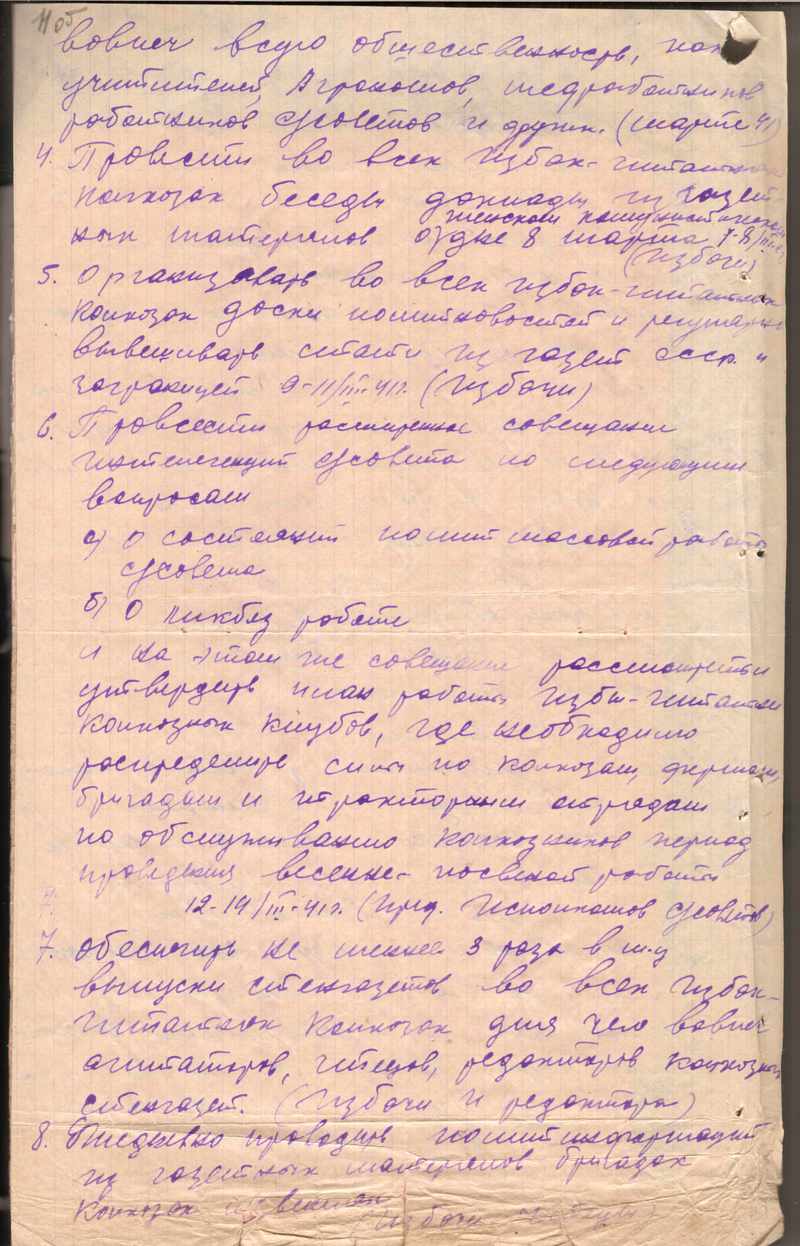 вовлеч всую общественность, как
учитителей, Агрономов, медработников
работников с/советов и други. (март 41)
4. Провести во всех избах-читальнях
колхозах беседы доклады из газет
женском коммунистическом
ных материалов о дне 8 марта 7-8/III-41
(избачи)
5. Организовать во всех избах-читальнях
колхозах доски политновостей и регулярно
вывешивать статьи из газет ссср. и
заграницей 9-11/III-41г. (избачи)
6. Провести расширенное совещание
интелегенций с/совета по следующим
вопросам
а) О состояний полит массовой работы
с/совета
б) О ликбез работе
и на этом же совещание рассмотреть и
утвердить план работы избы-читальни
колхозных клубов, где необходимо
распределить силы по колхозам, фермам,
бригадам и тракторным отрядам
по обслуживанию колхозников период
проведения весенне-посевной работы
12-14/III-41г. (пред. исполкомов с/советов)
7. Обеспечить не менее 3 раза в м-ц
выпуски стенгазетов во всех избах-
читальнях колхозах для чего вовлеч
агитаторов, чтецов, редакторов колхозных
стенгазет. (избачи и редактора)
8. Ежедневно проводить политинформаций
из газетных материалов бригадах
колхозах (избачи чтецы)